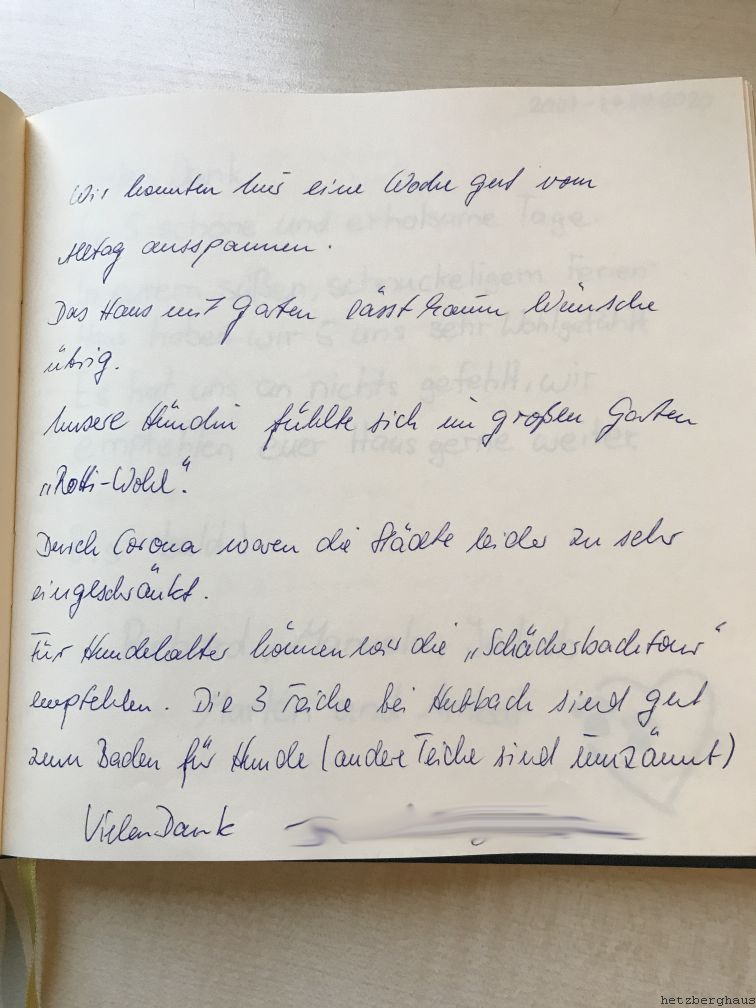 Wir konnten hier eine Woche gut vom
Alltag ausspannen.
Das Haus mit Garten lässt kaum Wünsche
übrig.
Unsere Hündin fühlte sich im großen Garten
„Rotti-Wohl“.
Durch Corona waren die Städte leider zu sehr
eingeschränkt.
Für Hundehalter können wir die „Schächerbachtour“
empfehlen. Die 3 Teiche bei sind gut
zum Baden für Hunde (andere Teiche sind umzäunt)
Vielen Dank
hetzberghaus